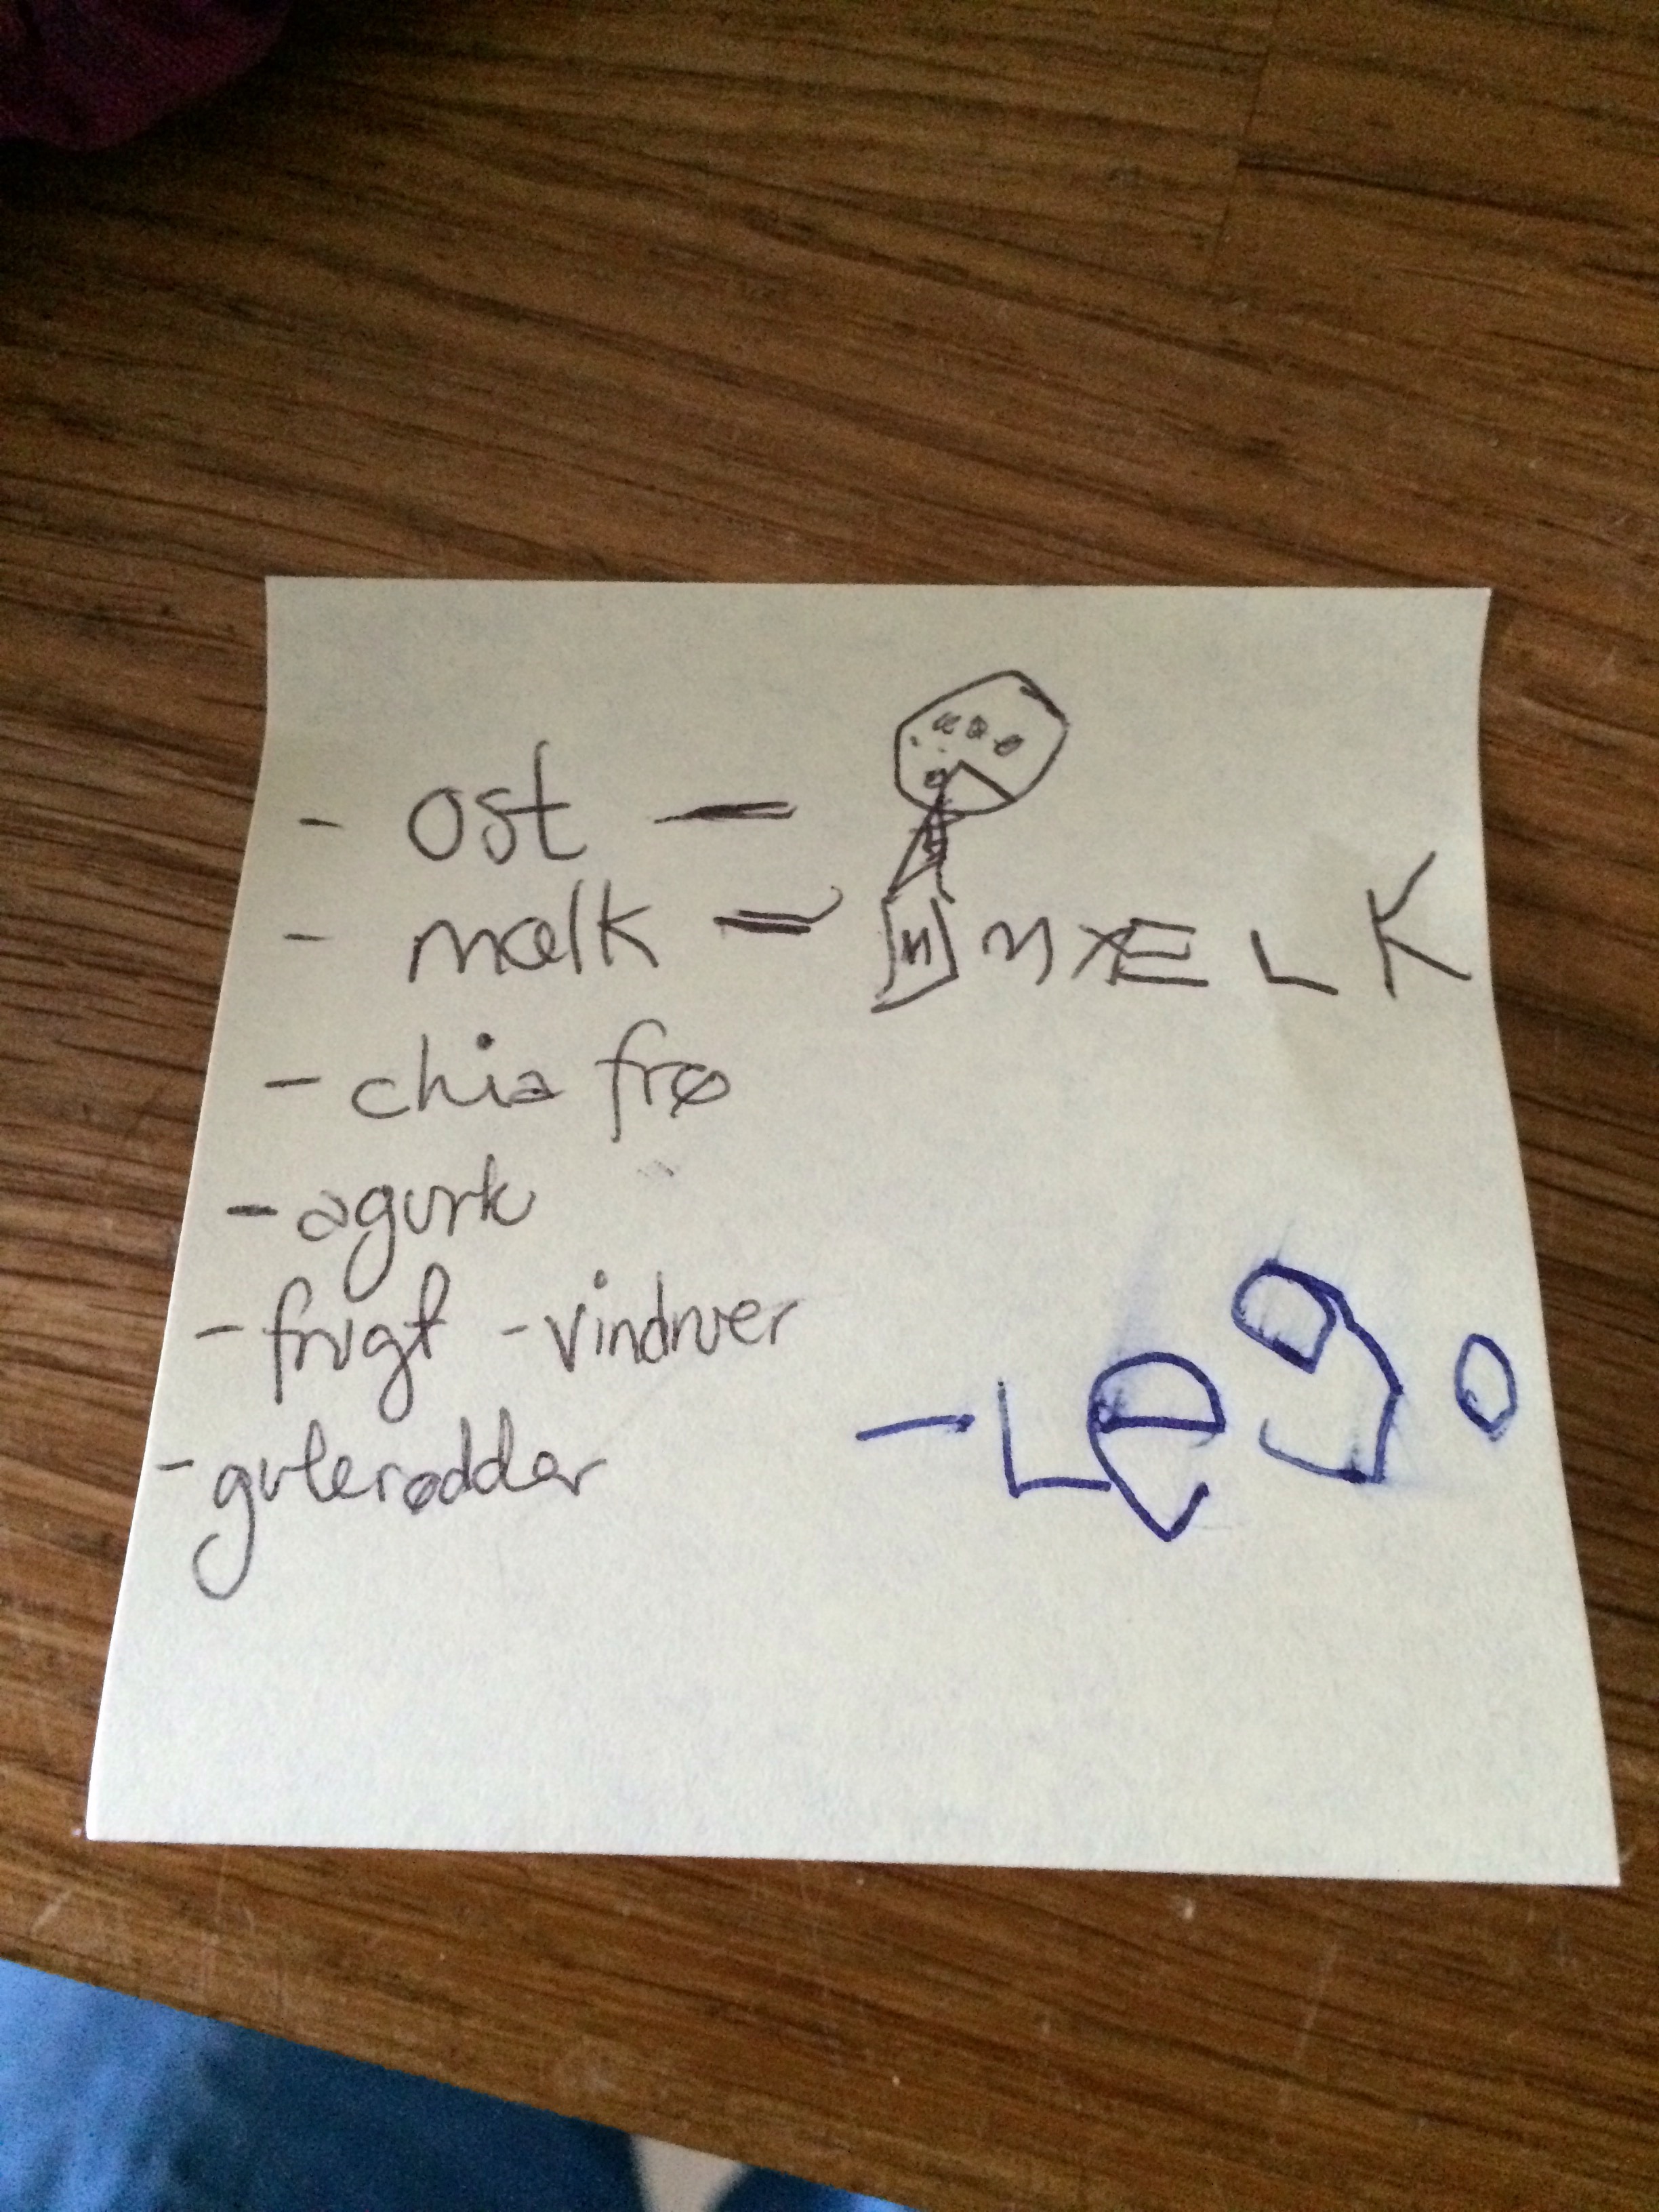 - ost -
- mælk - M MÆLK
- chia frø
- agurk
- frugt - vindruer
- gulerødder
- LegO